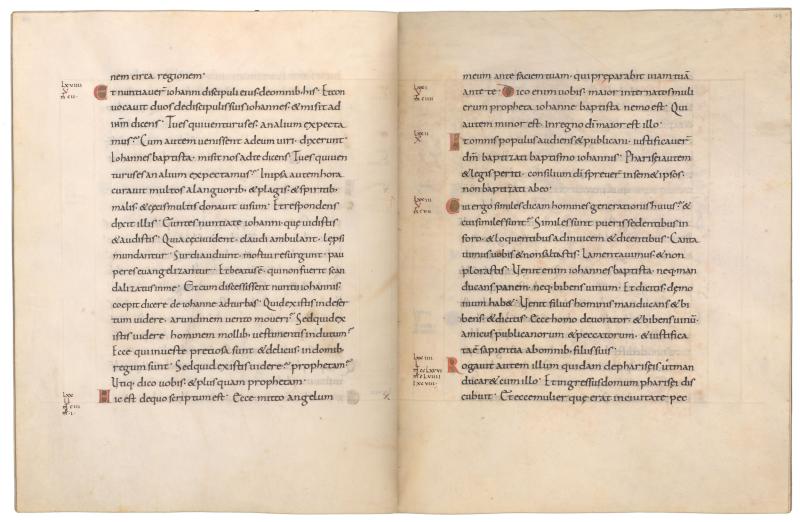 nem circa regionem·
Et nuntiaver̄ iohanni discipuli eius de omnib; his· Et con
vocavit duos de discipulis suis iohannes· & misit ad
ih̄m dicens· Tu es qui venturus es· an alium expecta
mus· Cum autem venissent ad eum viri· dixerunt·
Iohannes baptista· misit nos ad te dicens· Tu es qui ven
turus es an alium expectamus· In ipsa autem hora
curavit multos a languorib; & plagis· & spiritib;
malis· & cęcis multis donavit visum· Et respondens
dixit illis· Euntes nuntiate iohanni· quę vidistis
& audistis· Quia cęci vident· claudi ambulant· lepsi
mundantur· Surdi audiunt· mortui resurgunt· pau
peres evangelizantur· Et beatus ē· qui non fuerit scan
dalizatus in me· Et cum discessissent nuntii iohannis·
coepit dicere de iohanne ad turbas· Quid existis in deser
tum videre· arundinem vento moveri· Sed quid ex
istis videre· hominem mollib; vestimentis indutum·
Ecce qui in veste pretiosa sunt & deliciis· in domib;
regum sunt· Sed quid existis videre· prophetam·
Utiq; dico vobis· & plus quam prophetam·
Hic est de quo scriptum est· Ecce mitto angelum
meum ante faciem tuam· qui preparabit viam tuā
ante te· Dico enim vobis· maior inter natos muli
erum propheta iohanne baptista nemo est· Qui
autem minor est· in regno dī maior est illo·
Et omnis populus audiens & publicani· iustificaver̄
dm̄ baptizati baptismo iohannis· Pharisęi autem
& legis periti· consilium dī sprever̄ in sem& ipsos·
non baptizati ab eo·
Cui ergo similes dicam homines generationis huius· &
cui similes sunt· Similes sunt pueris sedentibus in
foro· & loquentibus ad invicem & dicentibus· Canta
vimus vobis & non saltastis· Lamentavimus· & non
plorastis· Venit enim iohannes baptista· neq; man
ducans panem· neq; bibens vinum· Et dicitis· dęmo
nium hab&· Venit filius hominis manducans & bi
bens· & dicitis· Ecce homo devorator· & bibens vinū·
amicus publicanorum & peccatorum· & iustifica
ta ē sapientia ab omnib; filiis suis·
Rogavit autem illum quidam de pharisęis· ut man
ducar& cum illo· Et ingressus domum pharisęi dis
cubuit· Et ecce mulier quę erat in civitate pec